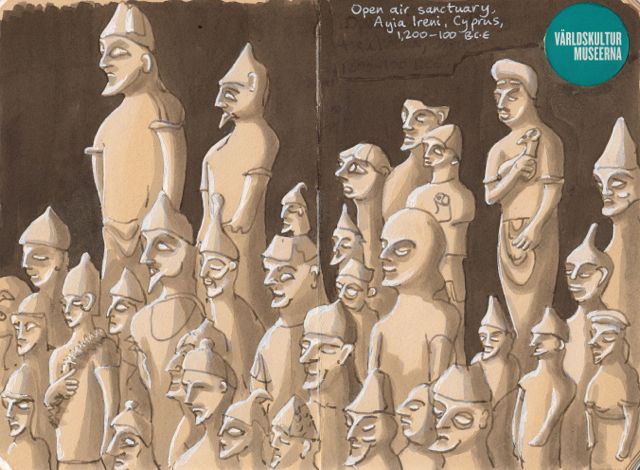 Open air sanctuary,
Ayia Ireni, Cyprus,
1,200-100 B.C.E
VÄRLDSKULTUR
MUSEERNA